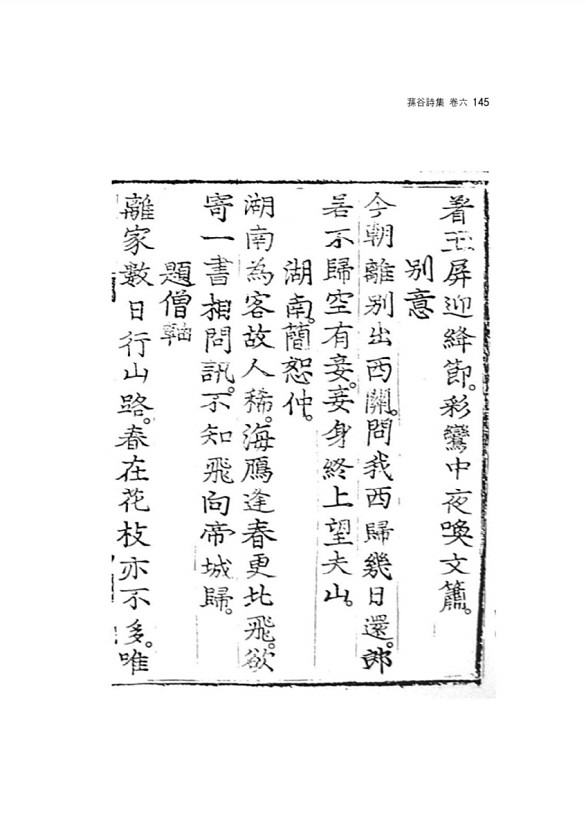 蓀谷詩集 卷六 145
着玉屏迎絳節。彩鸞中夜喚文簫。
别意
今朝離别出西關。問我西歸幾日還。郎
若不歸空有妾。妾身終上望夫山。
湖南。簡恕仲。
湖南為客故人稀。海鴈逢春更北飛。欲
寄一書相問訊。不知飛向帝城歸。
題僧軸
離家數日行山路。春在花枝亦不多。唯